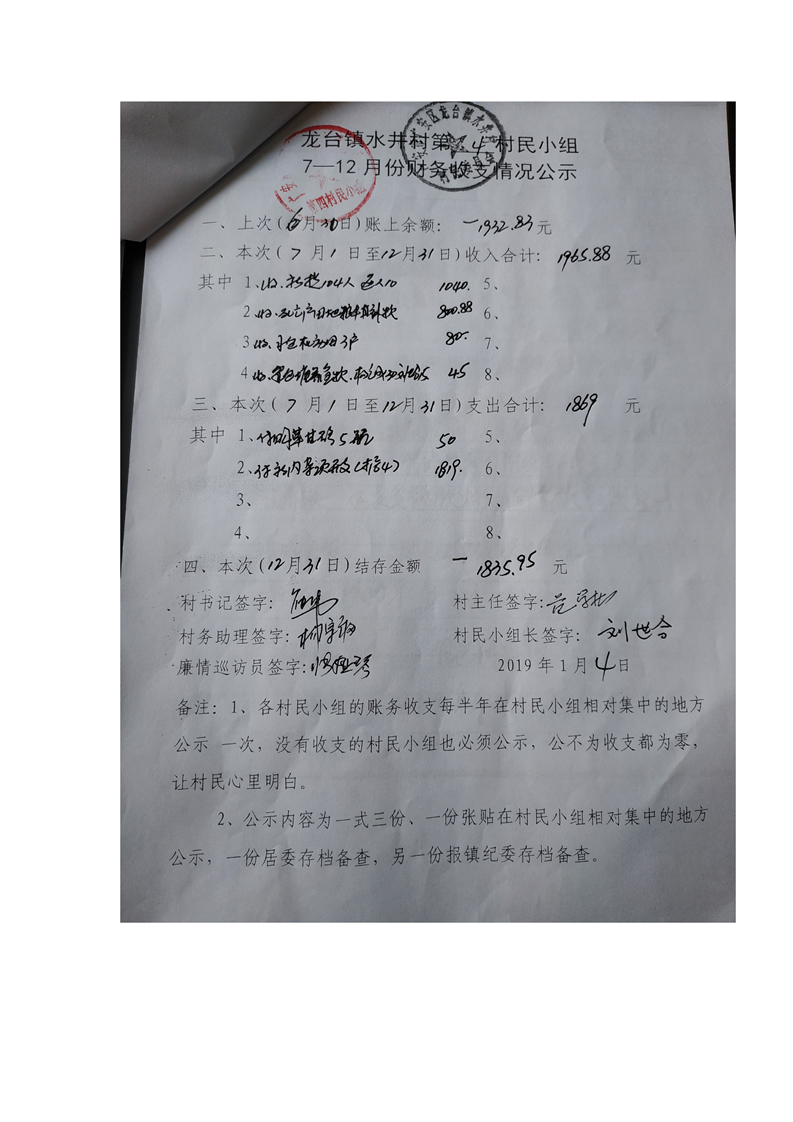 龙台镇水井村第 4 村民小组
7—12月份财务收支情况公示
第四村民小组
一、上次(6月30日)账上余额: -1932.83元
二、本次(7月1日至12月31日)收入合计: 1965.88 元
其中 1、收 104人 10 1040. 5、
2 收 800.88 6、
3 收 80. 7、
4 收 45 8、
三、本次(7月1日至12月31日)支出合计: 1869 元
其中 1、付 50 5、
2、付 1819. 6、
3、 7、
4、 8、
四、本次(12月31日)结存金额 -1835.95 元
村书记签字: 村主任签字:
村务助理签字: 村民小组长签字: 刘世合
廉情巡访员签字: 2019年1月4日
备注:1、各村民小组的账务收支每半年在村民小组相对集中的地方
公示 一次,没有收支的村民小组也必须公示,公不为收支都为零,
让村民心里明白。
2、公示内容为一式三份、一份张贴在村民小组相对集中的地方
公示,一份居委存档备查,另一份报镇纪委存档备查。